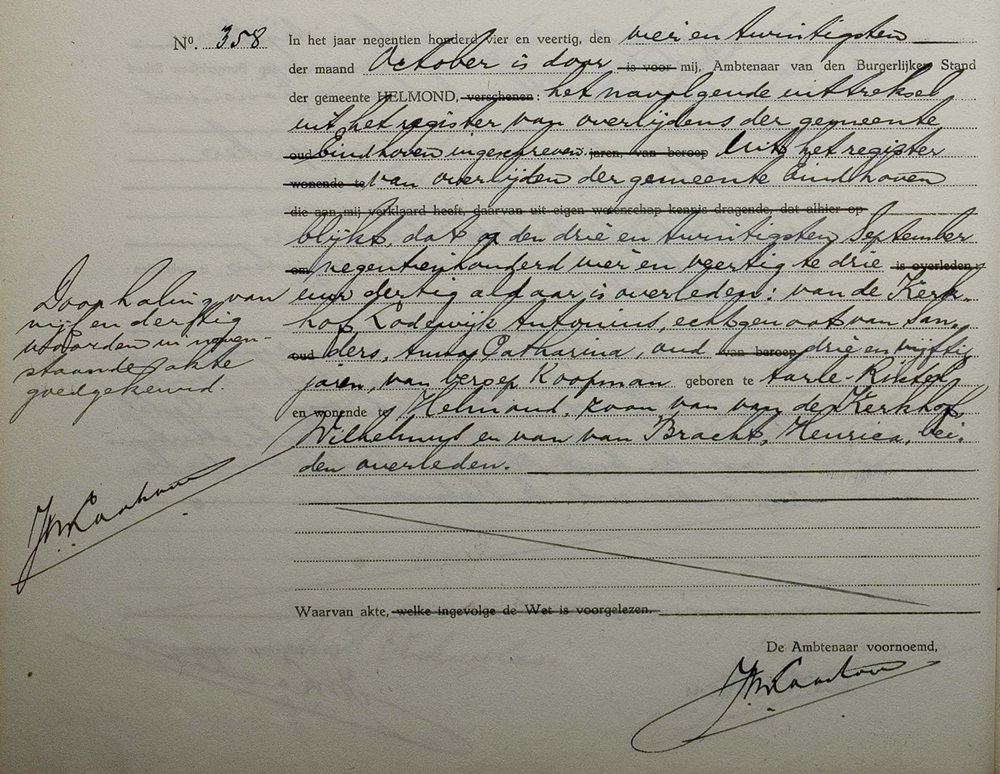 No. 358 In het jaar negentien honderd vier en veertig, den vier en twintigsten
der maand October is door is voor mij, Ambtenaar van den Burgerlijken Stand
der gemeente HELMOND, verschenen: het navolgende uittreksel
uit het register van overlijdens der gemeente
oud Eindhoven ingeschreven. jaren, van beroep Uit het register
wonende te van overlijden der gemeente Eindhoven
die aan mij verklaard heeft, daarvan uit eigen wetenschap kennis dragende, dat alhier op
blijkt, dat op den drie en twintigsten September
om negentienhonderd vier en veertig te drie is overleden:
uur dertig aldaar is overleden: van de Kerk-
hof, Lodewijk Antonius, echtgenoot van San-
oud ders, Anna Catharina, oud van beroep drie en vijftig
jaren, van beroep Koopman geboren te Aarle-Rixtel
en wonende te Helmond, zoon van van de Kerkhof,
Wilhelmus en van van Bracht, Henrica, bei-
den overleden.
Doorhaling van
vijf en dertig
woorden in neven-
staande akte
goedgekeurd.
Waarvan akte, welke ingevolge de Wet is voorgelezen.
De Ambtenaar voornoemd,